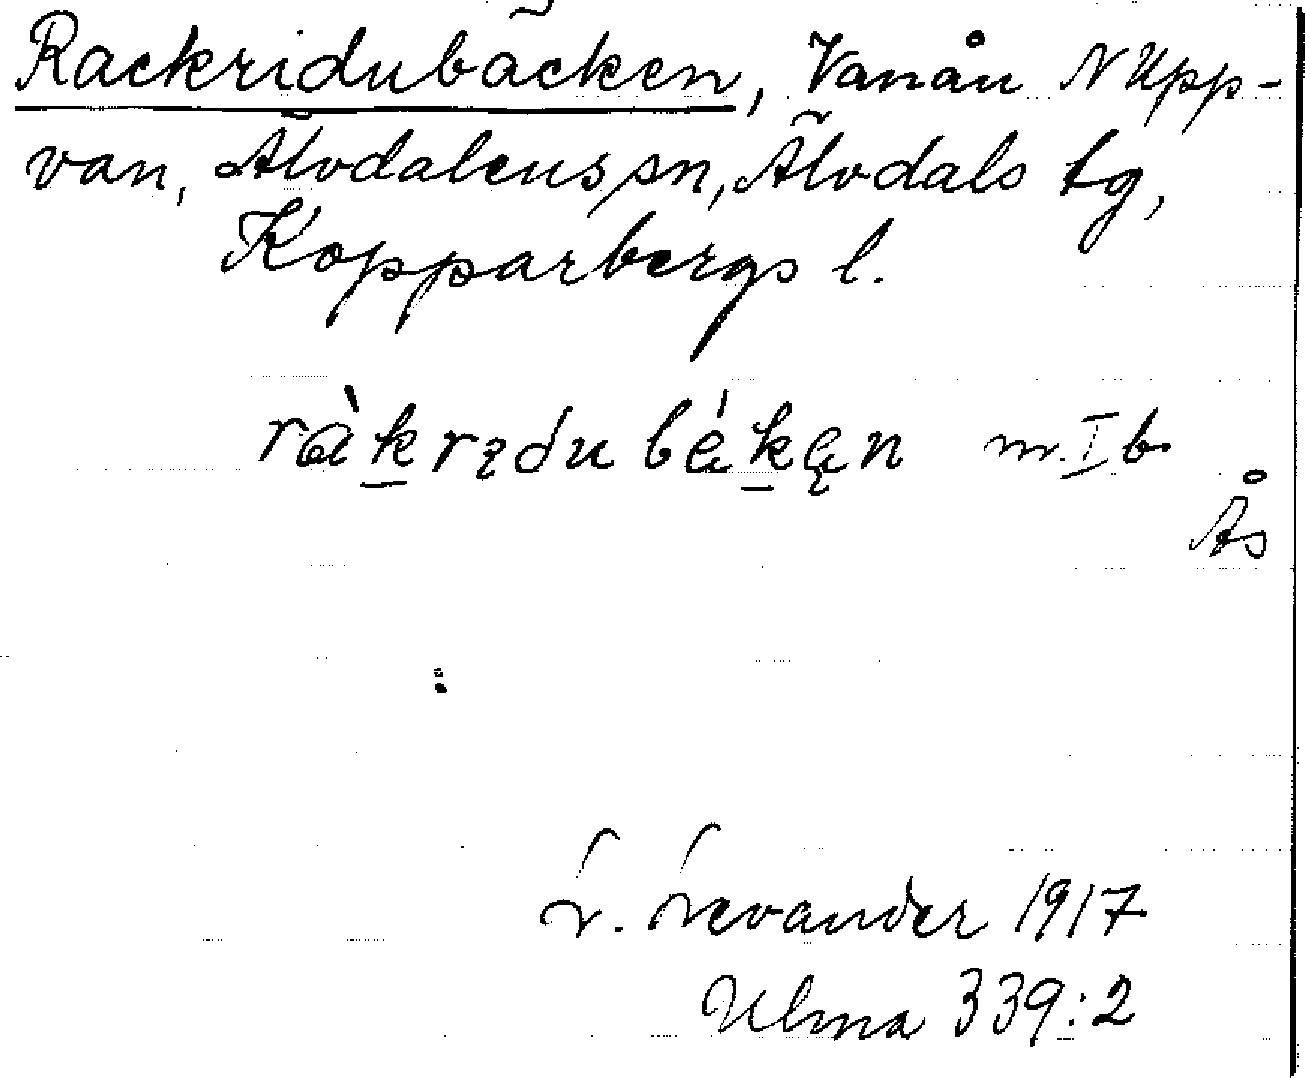 Rackridubäcken, Vanån N Upp-
van, Älvdalens sn, Älvdals tg,
Kopparbergs l.
ràkrıdubǽkæn m. I b
Ås
L. Levander 1917
Ulma 339:2